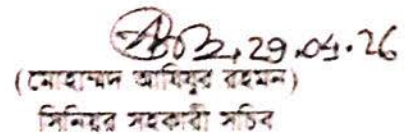 29.04.26
(মোহাম্মদ আমিনুর রহমান)
সিনিয়র সহকারী সচিব